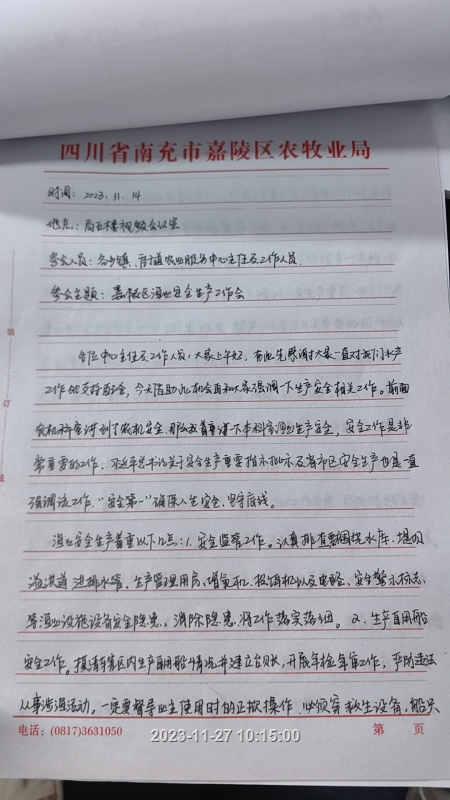 四川省南充市嘉陵区农牧业局
时间：2023.11.14
地点：局五楼视频会议室
参会人员：各乡镇、街道农业服务中心主任及工作人员
参会主题：嘉陵区渔业安全生产工作会
各位中心主任及工作人员，大家上午好，在此先感谢大家一直对我们水产
工作的支持配合，今天借助此机会再和大家强调一下生产安全相关工作。前面
农机科室讲到了农机安全，那么我着重讲一下本科室渔业生产安全，安全工作是非
常重要的工作，习近平总书记关于安全生产重要指示批示及省市区安全生产也是一直
强调该工作，"安全第一"确保人生安全，坚守底线。
渔业安全生产着重以下几点：1.安全监管工作。认真排查养殖水库、堤坝
溢洪道 进排水管、生产管理用房、增氧机、投饵机以及电路、安全警示标志
等渔业设施设备安全隐患，消除隐患，将工作落实落细。2.生产自用船
安全工作。摸清辖区内生产自用船情况并建立台账，开展年检年审工作，严防违法
从事涉渔活动。一定要督导业主使用时的正规操作，必须穿救生设备，船只
电话：(0817)3631050
第 页
2023-11-27 10:15:00
装
订
线